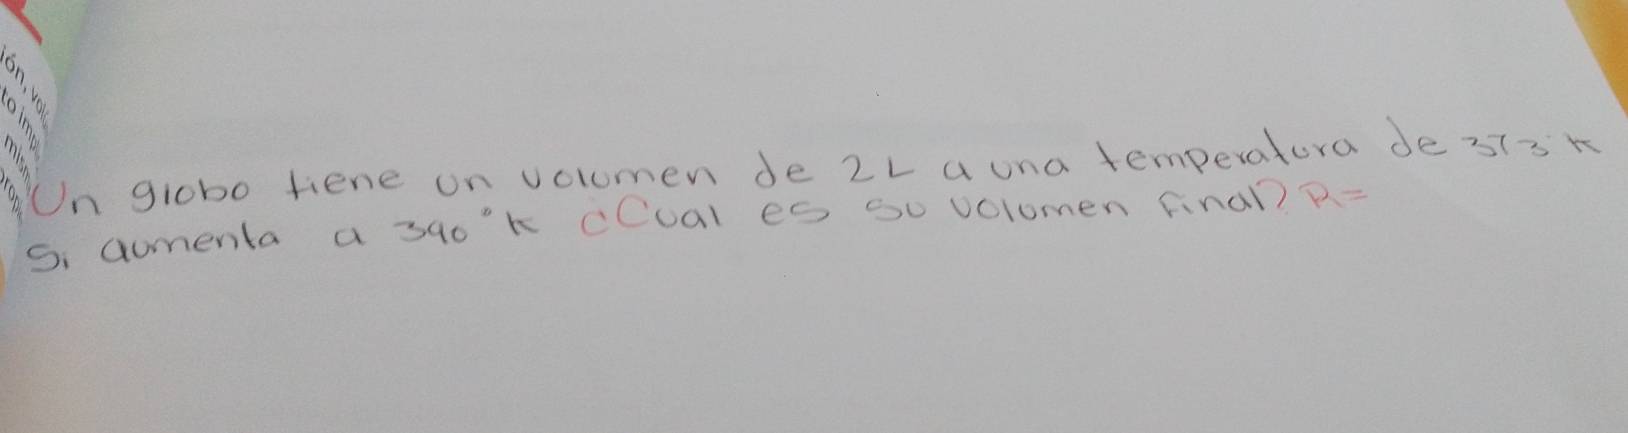 ión, 
to imp
Un globo tiene un volumen de 2L a una temperatura de 373°K
Si aumenta a 390°K ¿Cual es su volumen final? R=